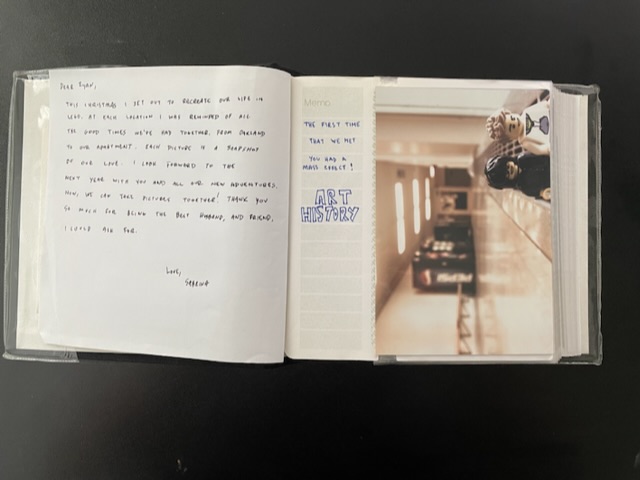 DEAR RYAN,
THIS CHRISTMAS I SET OUT TO RECREATE OUR LIFE IN
LEGO. AT EACH LOCATION I WAS REMINDED OF ALL
THE GOOD TIMES WE'VE HAD TOGETHER, FROM OAKLAND
TO OUR APARTMENT. EACH PICTURE IS A SNAPSHOT
OF OUR LOVE. I LOOK FORWARD TO THE
NEXT YEAR WITH YOU AND ALL OUR NEW ADVENTURES.
NOW, WE CAN TAKE PICTURES TOGETHER! THANK YOU
SO MUCH FOR BEING THE BEST HUSBAND, AND FRIEND,
I COULD ASK FOR.
LOVE,
SABRINA
Memo
THE FIRST TIME
THAT WE MET
YOU HAD A
MASS EFFECT!
ART
HISTORY
PEPSI